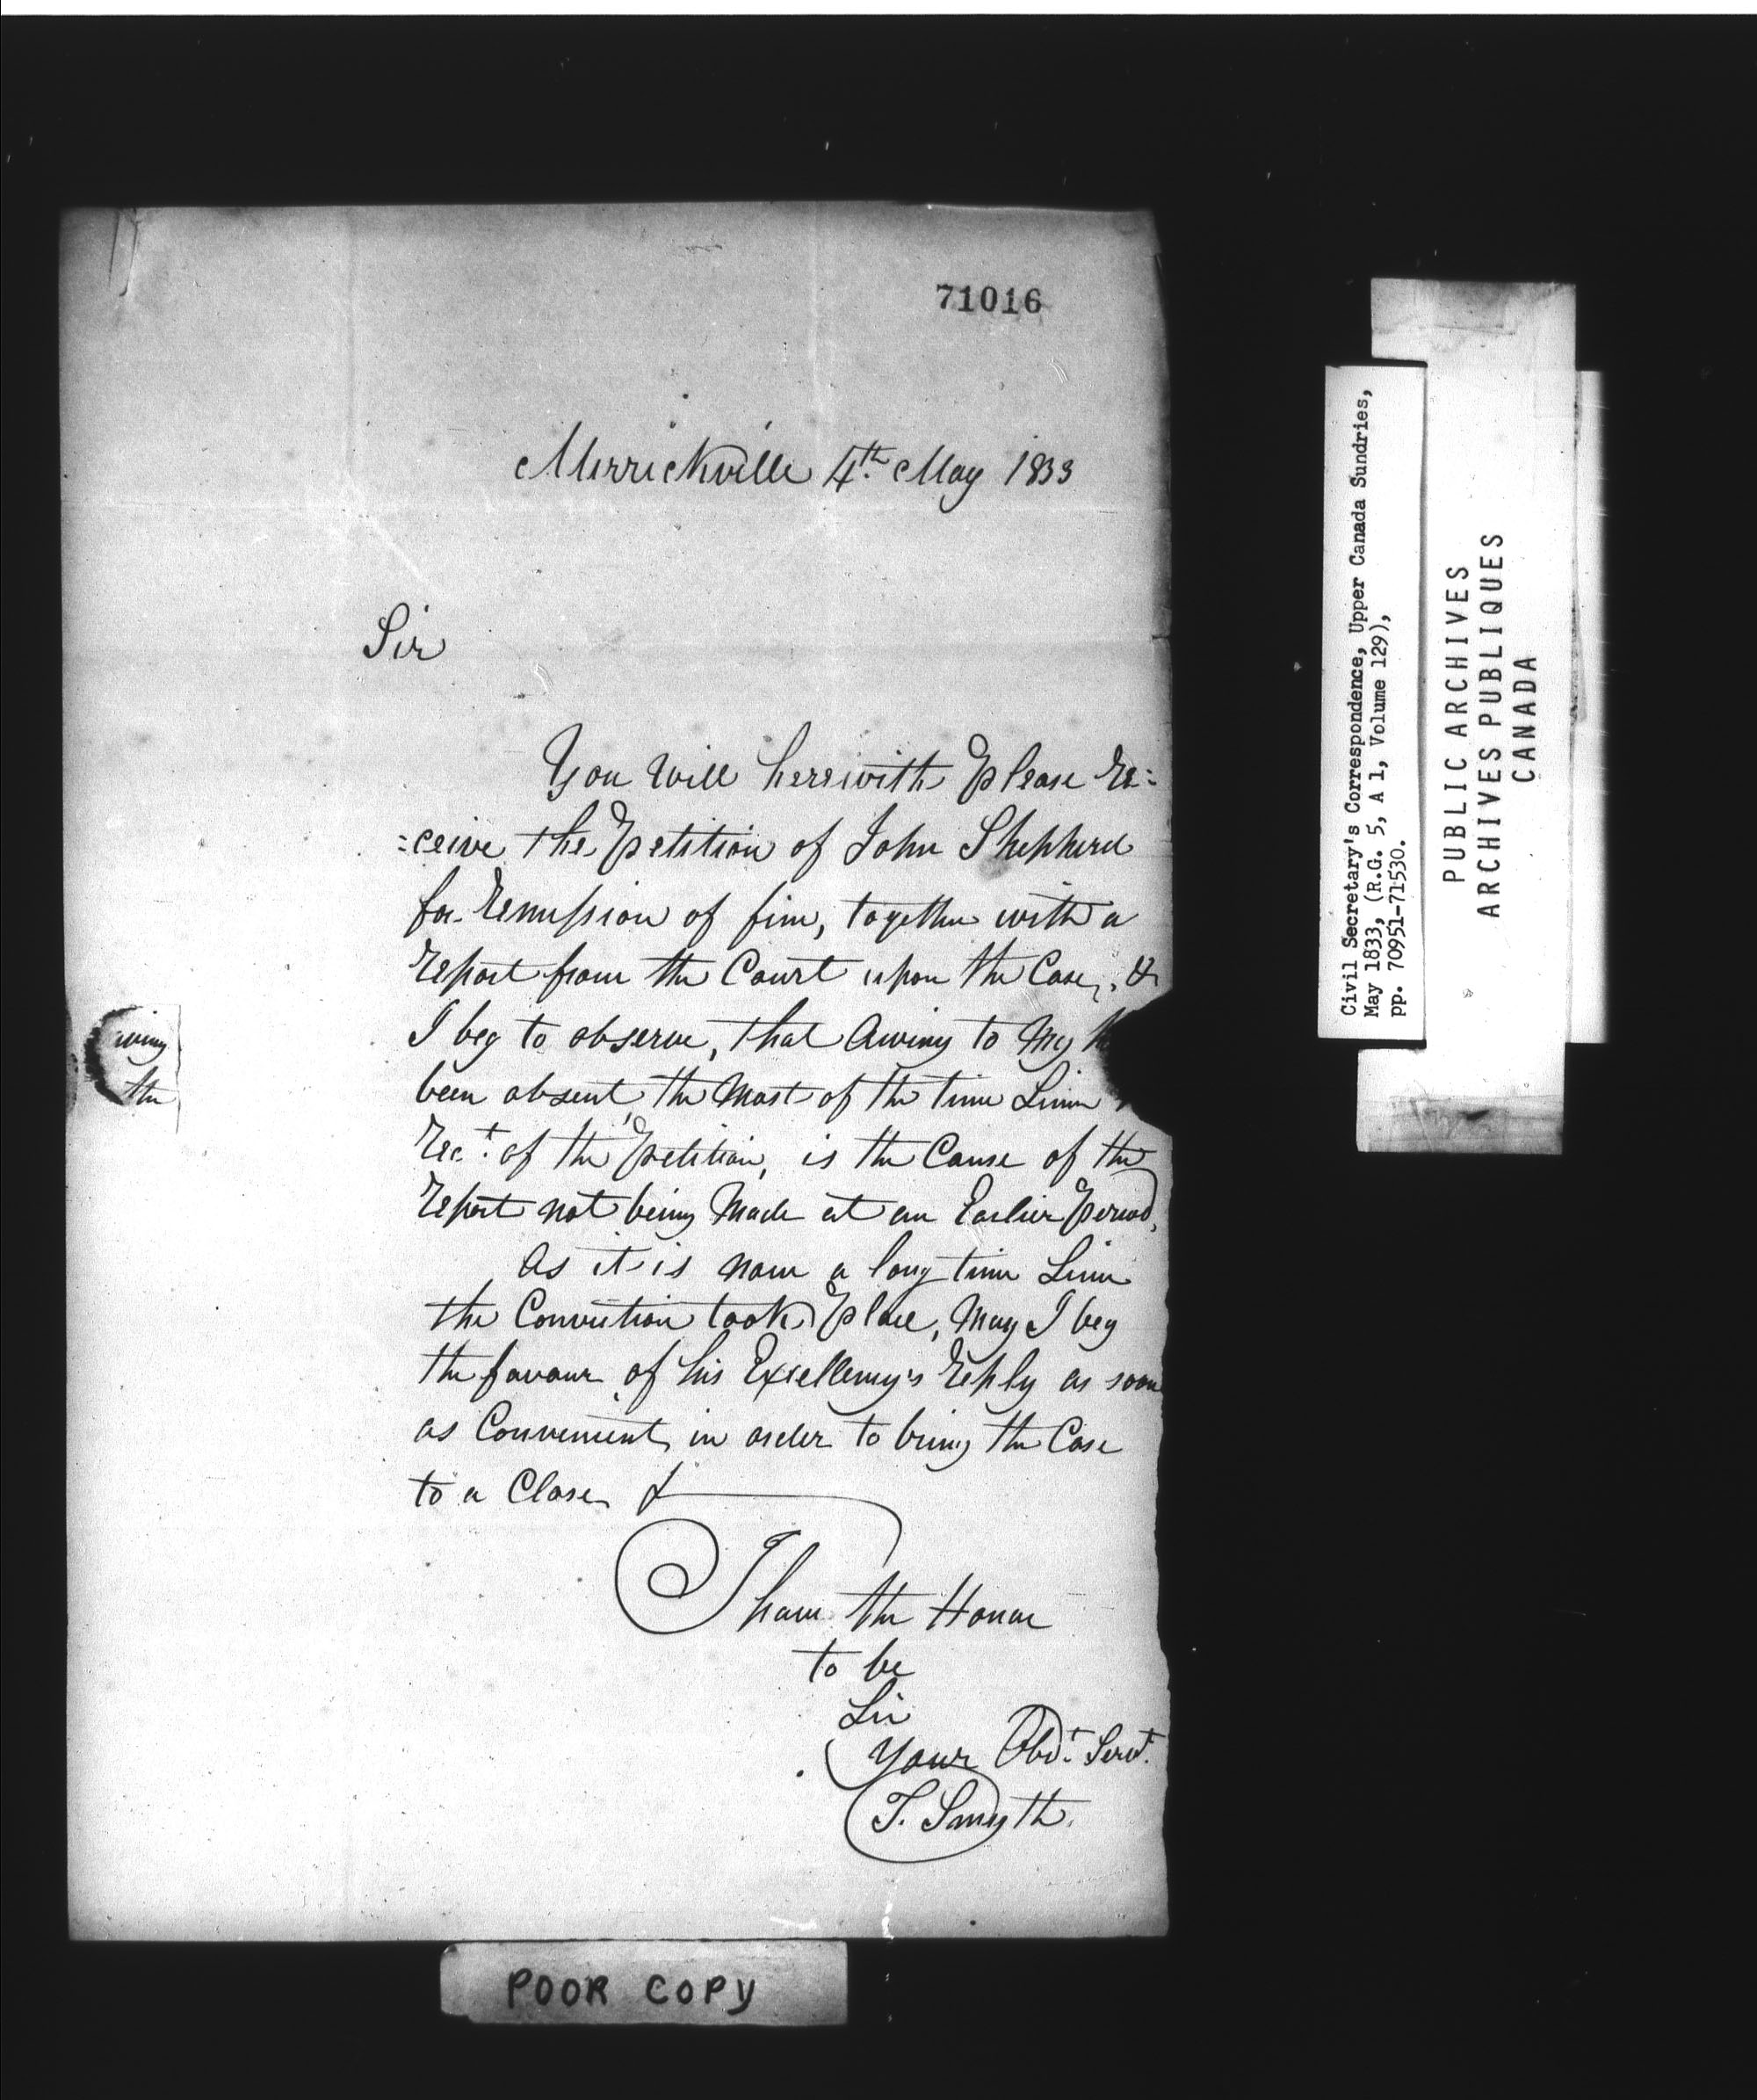 71016
Merrickville 4th May 1833
Sir
You will herewith please re=
=ceive the petition of John Shepherd
for remission of fine, together with a
report from the Court upon the Case, &
I beg to observe, that Owing to My h
been absent, the Most of the time Since
Rect of the petition, is the Cause of the
report not being Made at an Earlier period,
As it is now a long time Since
the Conviction took place, May I beg
the favour of his Excellency's reply as soon
as Convenient, in order to bring the Case
to a Close &
I have the Honor
to be
Sir
Your Obdt. Servt.
T. Smyth.
aving
the
POOR COPY
Civil Secretary's Correspondence, Upper Canada Sundries,
May 1833, (R.G. 5, A 1, Volume 129),
pp. 70951-71530.
PUBLIC ARCHIVES
ARCHIVES PUBLIQUES
CANADA